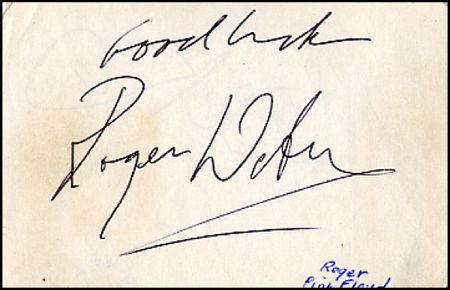 Good luck
Roger Waters
Roger
Pink Floyd